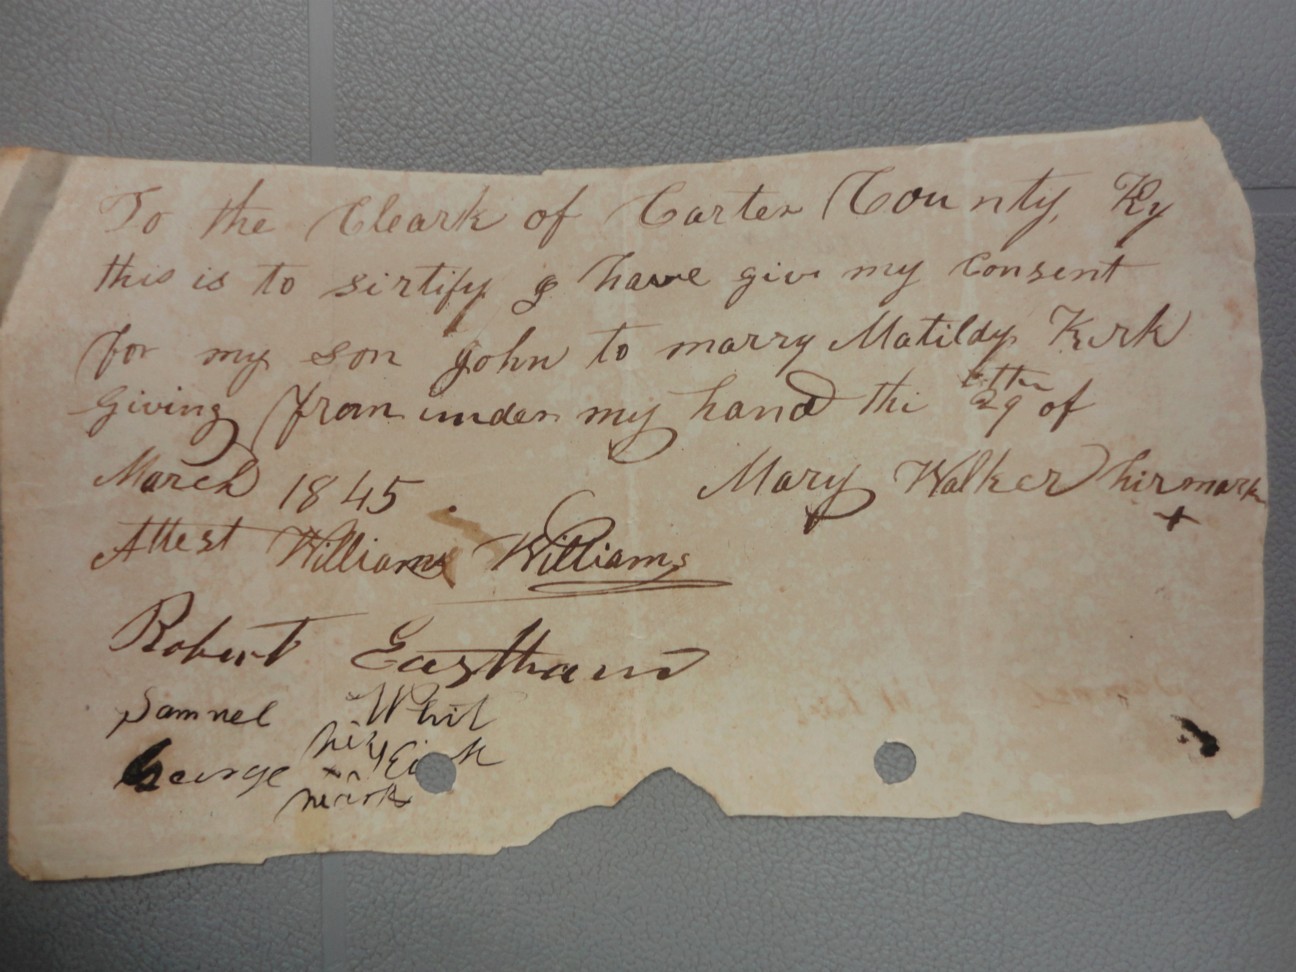 To the Cleark of Carter County, Ky
this is to sirtify I have give my Consent
for my son John to marry Matildy Kirk
Giving from under my hand the 29 of
March 1845. Mary Walker hir mark
+
Attest William Williams
Robert Eastham
Samuel Whit
his
George x Kirk
mark